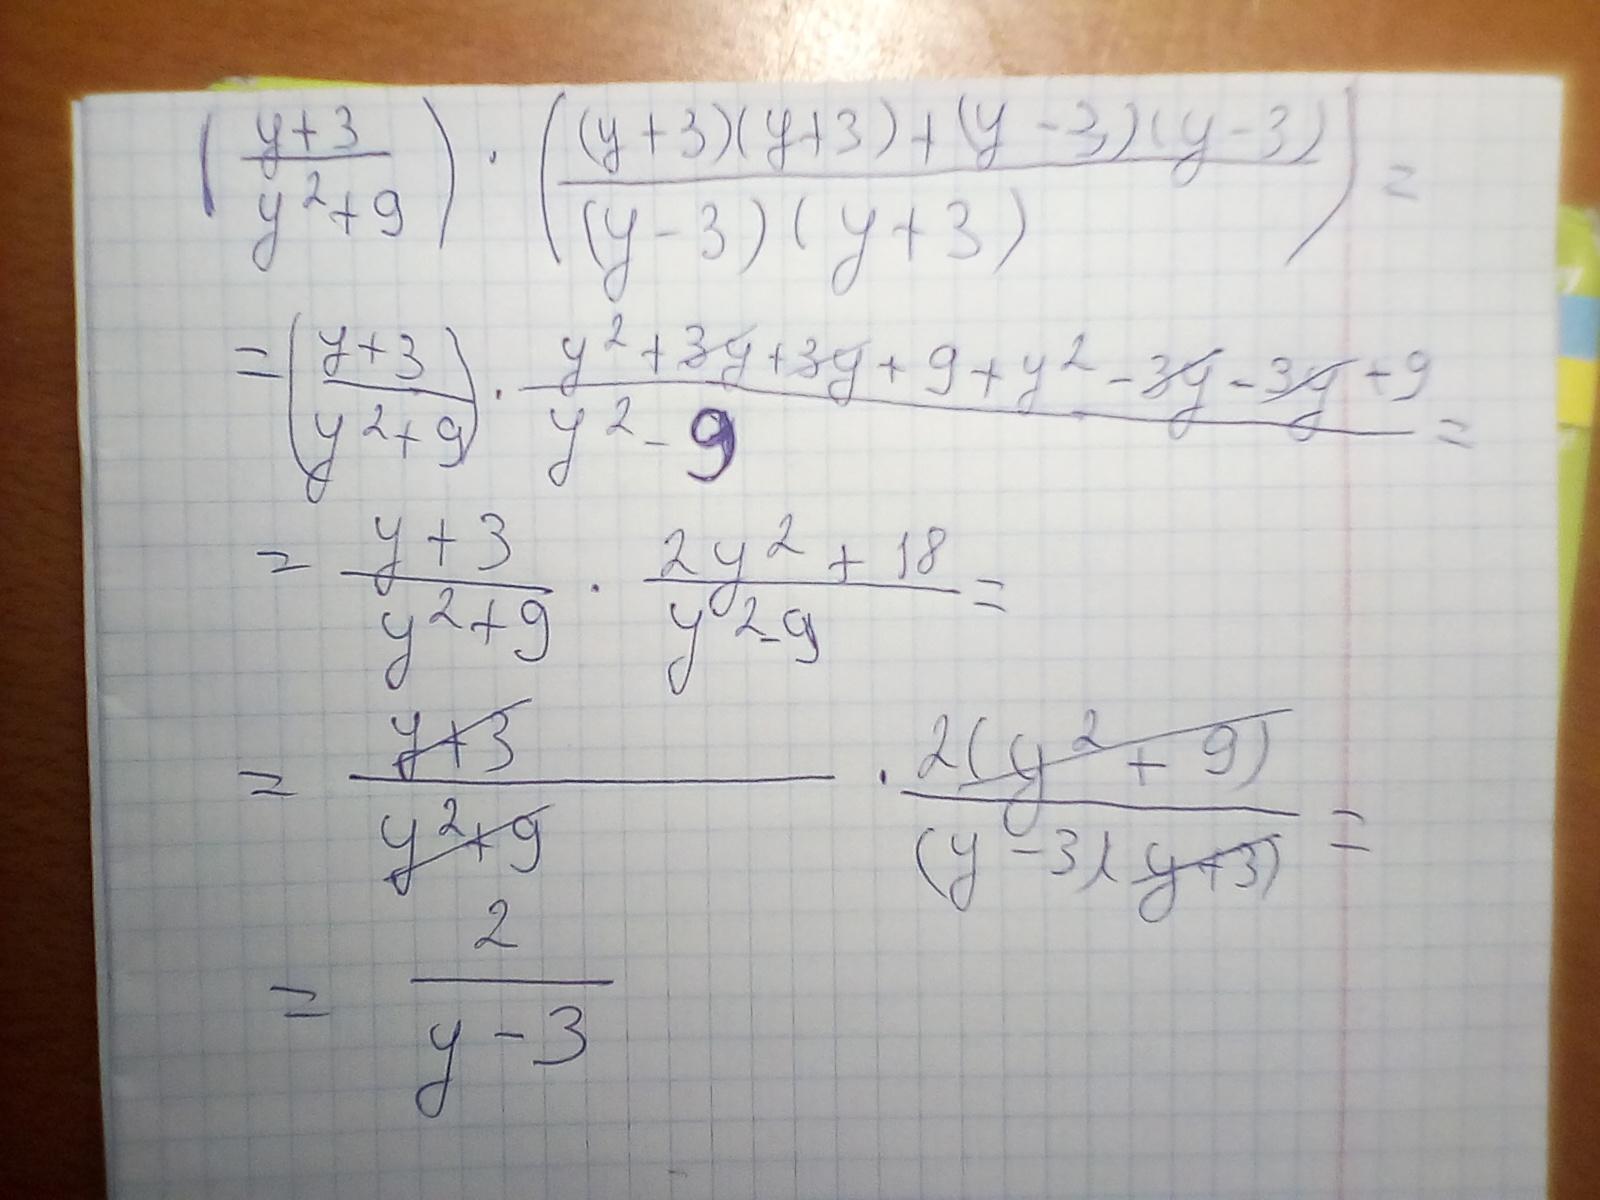 (y+3 / y²+9) · ((y+3)(y+3)+(y-3)(y-3) / (y-3)(y+3)) =
= (y+3 / y²+9) · y²+3y+3y+9+y²-3y-3y+9 / y²-9 =
= y+3 / y²+9 · 2y²+18 / y²-9 =
= y+3 / y²+9 · 2(y²+9) / (y-3)(y+3) =
= 2 / y-3